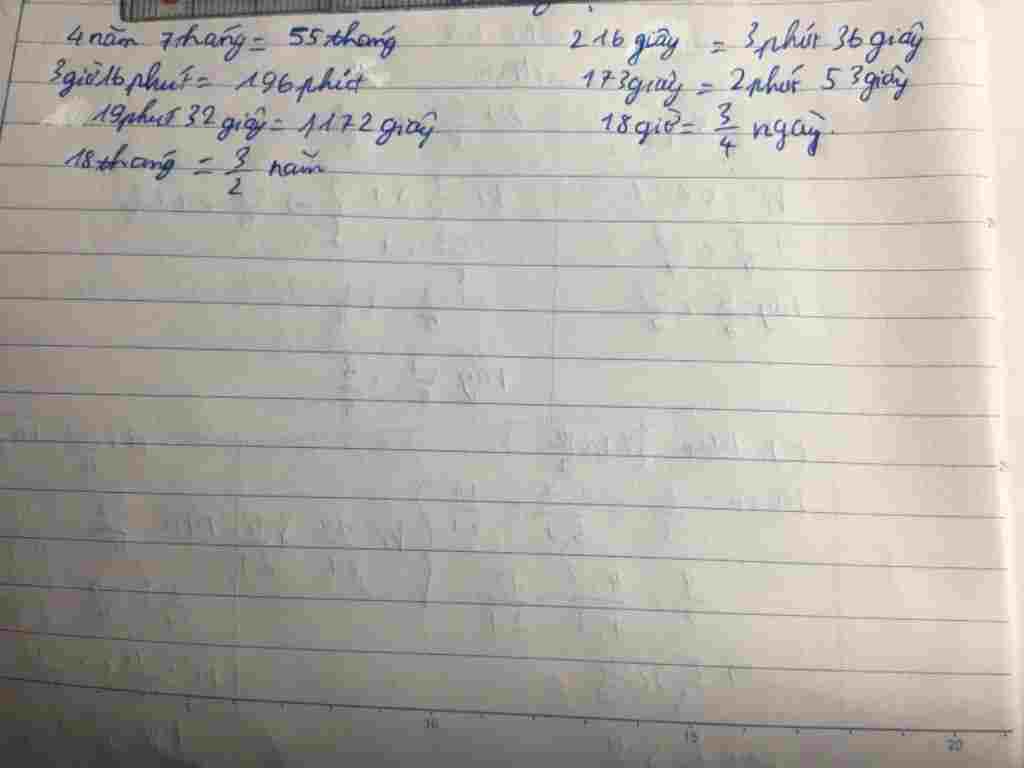 4 năm 7 tháng = 55 tháng
216 giây = 3 phút 36 giây
3 giờ 16 phút = 196 phút
173 giây = 2 phút 53 giây
19 phút 32 giây = 1172 giây
18 giờ = 3/4 ngày.
18 tháng = 3/2 năm
10
15
20